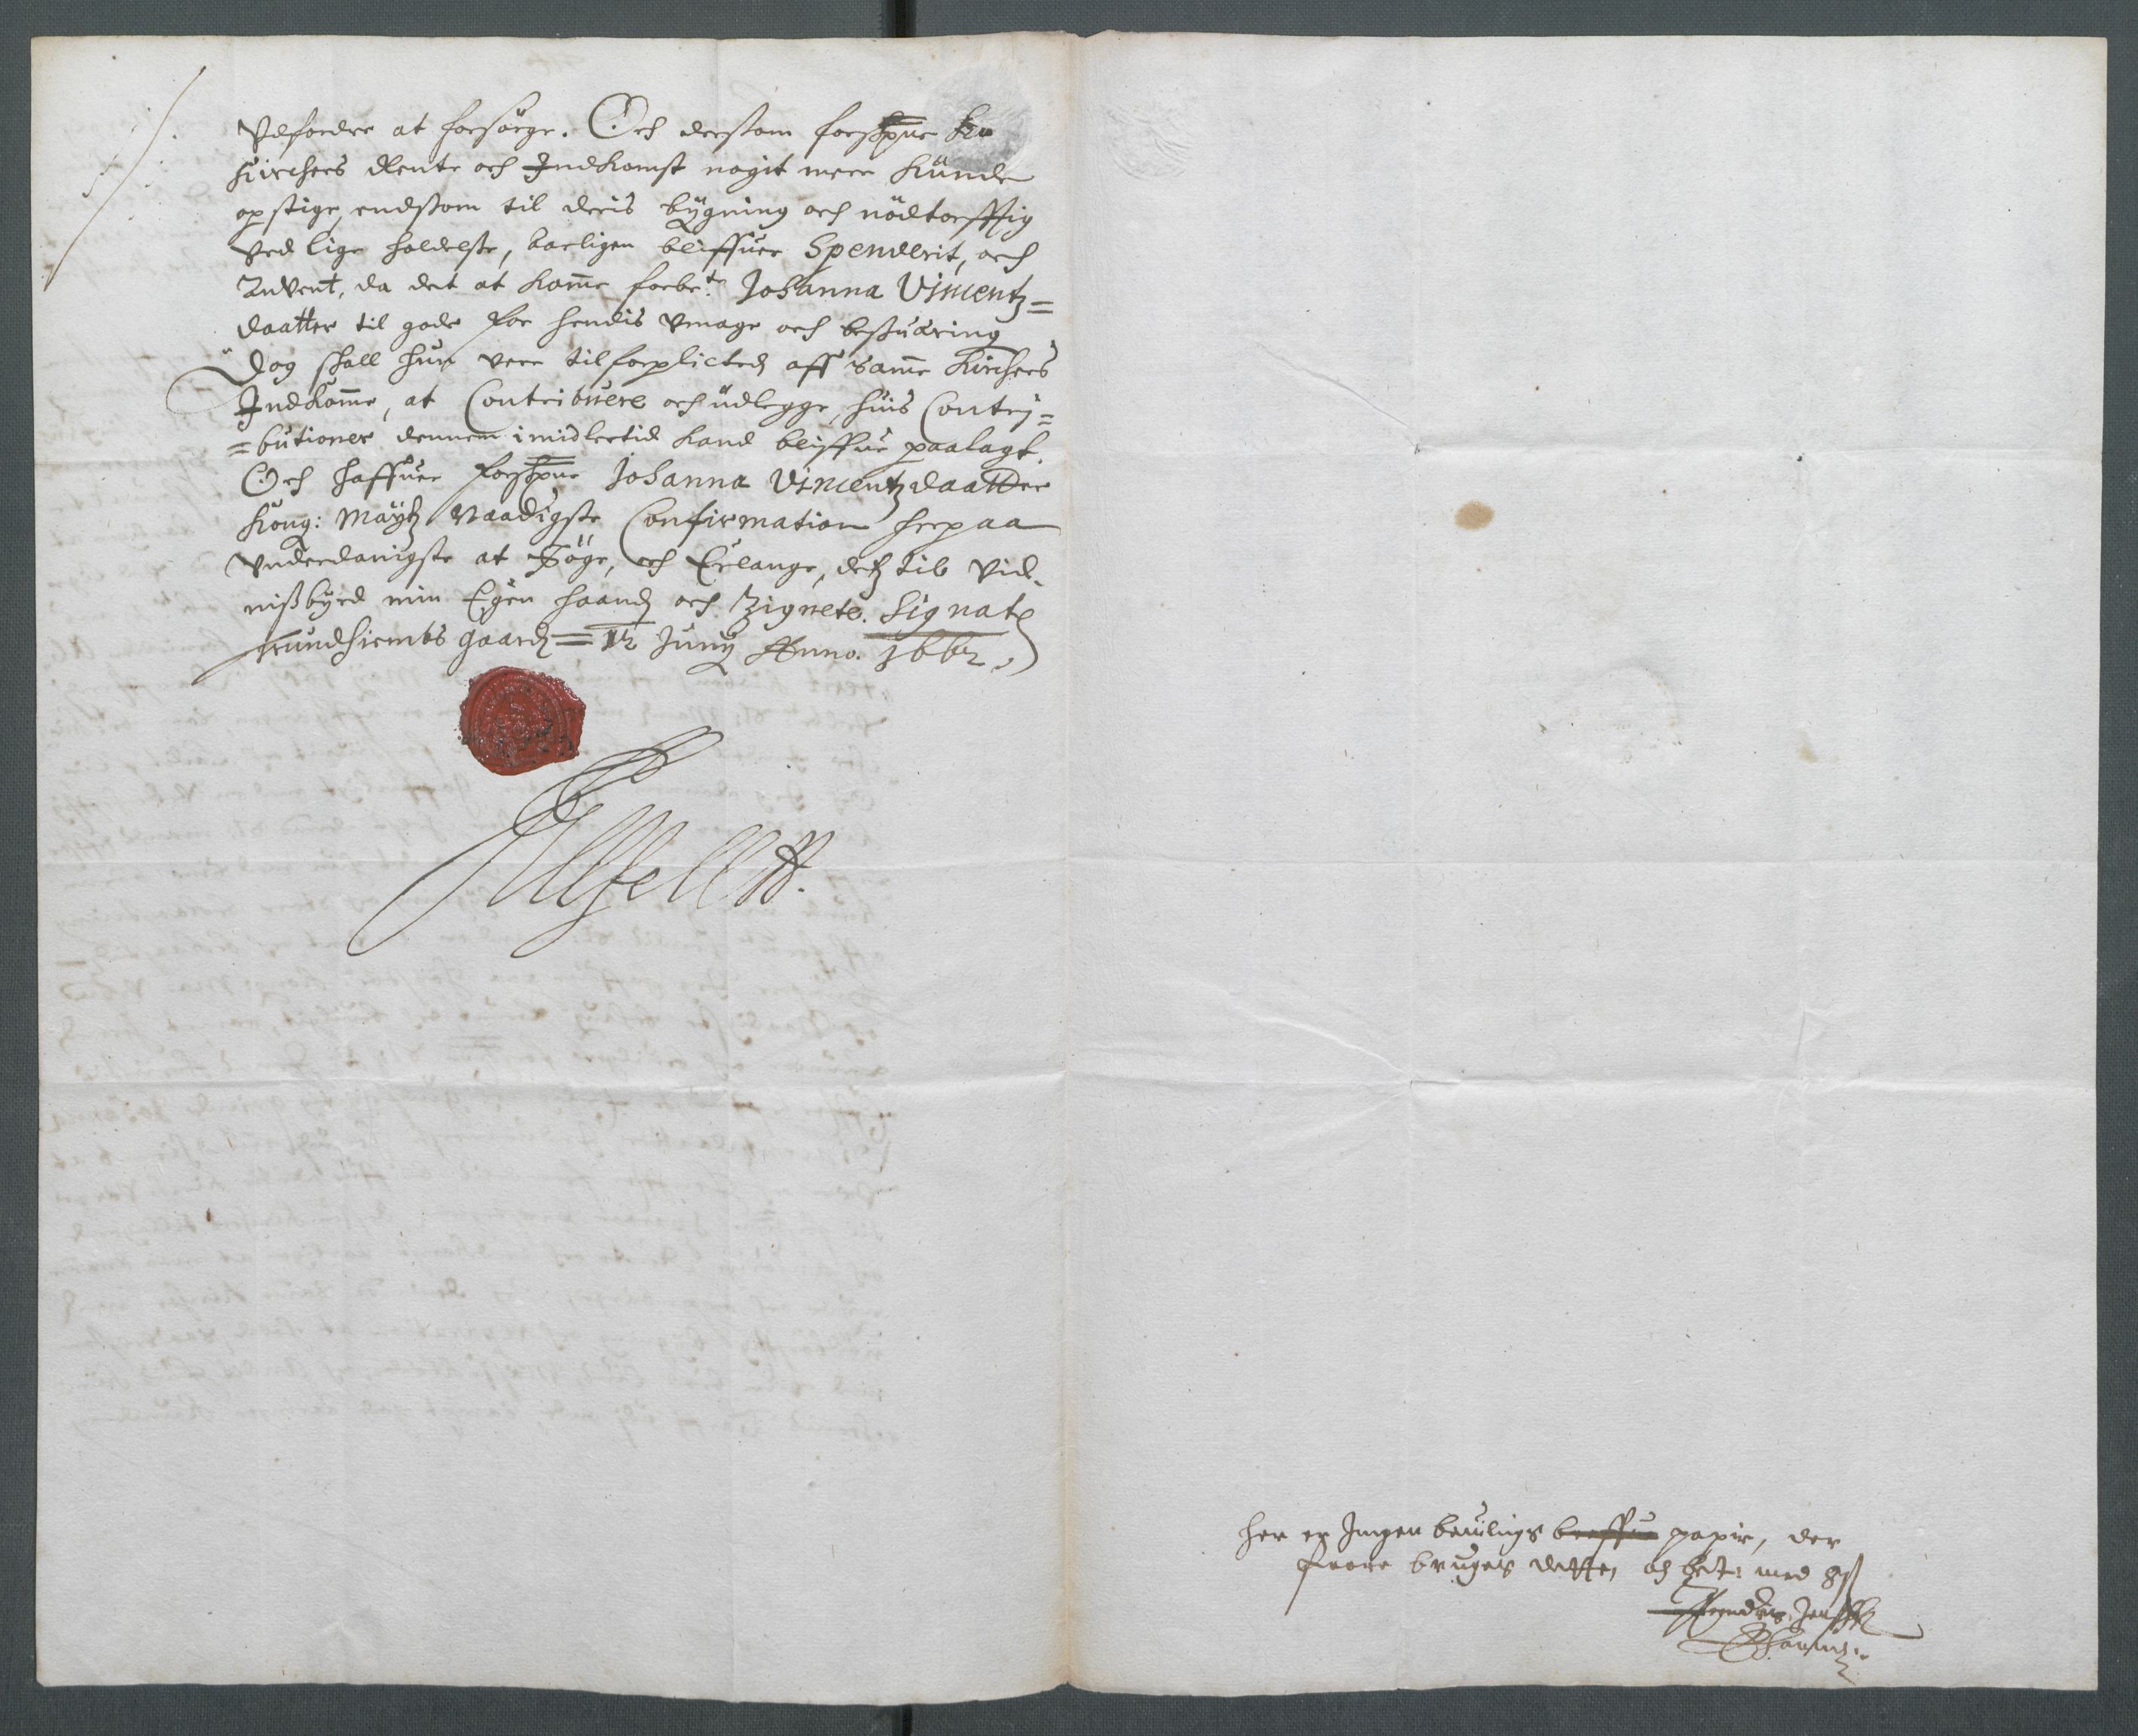 Udfordre at forsörge. Och dersom forschreffne
Kirchers Rente och Indkomst nogit mere Kunde
opstige, endsom til deris bÿgning och nödtorfftig
ved lige holdelse, aarligen bliffuer Spenderit, och
Anvent, da det at komme forbe:te Johanna Vincentz=
daatter til gode for hendis Umage och besuæring
Dog skall hun vere tilforplicted aff samme Kirchers
Indkomme, at Contribuere och udlegge, huis Contri=
=butioner dennem imidlertid kand bliffue paalagt.
Och haffuer forschreffne Johanna Vincentzdaatter
Kong: Maÿtz Naadigste Confirmation herpaa
Underdanigste at Söge, och Erlange, detz til Vid-
nisbyrd min Egen haand och Zignete. Signat
Trundhiembs gaard = 12 Junij Anno. 1662.
her er Ingen papir, der
faare bruges dette, och